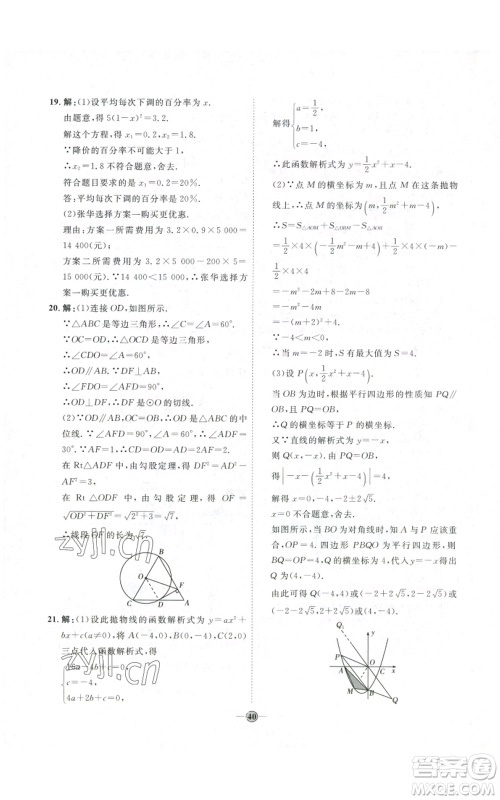 19. 解:(1)设平均每次下调的百分率为 x.
由题意,得 5(1-x)²=3.2.
解这个方程,得 x₁=0.2,x₂=1.8.
∵降价的百分率不可能大于 1,
∴x₂=1.8 不符合题意,舍去.
符合题目要求的是 x₁=0.2=20%.
答:平均每次下调的百分率为 20%.
(2)张华选择方案一购买更优惠.
理由:方案一所需费用为 3.2×0.9×5 000=
14 400(元);
方案二所需费用为 3.2×5 000-200×5=
15 000(元).∵14 400<15 000,∴张华选择方
案一购买更优惠.
20. 解:(1)连接 OD,如图所示.
∵△ABC 是等边三角形,∴∠C=∠A=60°.
∵OC=OD,∴△OCD 是等边三角形,
∴∠CDO=∠A=60°,
∴OD∥AB.∵DF⊥AB,
∴∠FDO=∠AFD=90°,
∴OD⊥DF,∴DF 是⊙O 的切线.
(2)∵OD∥AB,OC=OB,∴OD 是△ABC 的中
位线.∵∠AFD=90°,∠A=60°,∴∠ADF=
30°.∵AF=1,∴CD=OD=AD=2AF=2.
在 Rt△ADF 中,由勾股定理,得 DF²=3.
在 Rt△ODF 中,由勾股定理,得 OF=
√OD²+DF²=√2²+3=√7,
∴线段 OF 的长为√7.
B
O
F
C
D
A
21. 解:(1)设此抛物线的函数解析式为 y=ax²+
bx+c(a≠0),将 A(-4,0),B(0,-4),C(2,0)
三点代入函数解析式,得
16a-4b+c=0,
c=-4,
4a+2b+c=0,
解得 a=1/2,
b=1,
c=-4,
∴此函数解析式为 y=1/2x²+x-4.
(2)∵点 M 的横坐标为 m,且点 M 在这条抛物
线上,∴点 M 的坐标为(m,1/2m²+m-4),
∴S=S△AOM+S△OBM-S△AOB
=1/2×4×(-1/2m²-m+4)+1/2×4×(-m)-
1/2×4×4
=-m²-2m+8-2m-8
=-m²-4m
=-(m+2)²+4.
∵-4<m<0,
∴当 m=-2 时,S 有最大值为 4.
(3)设 P(x,1/2x²+x-4).
当 OB 为边时,根据平行四边形的性质知 PQ∥
OB,且 PQ=OB,
∴Q 的横坐标等于 P 的横坐标.
又∵直线的解析式为 y=-x,
∴Q(x,-x).由 PQ=OB,得
|-x-(1/2x²+x-4)|=4,
解得 x=0,-4,-2±2√5.
x=0 不符合题意,舍去.
如图所示,当 BO 为对角线时,知 A 与 P 应该重
合,OP=4.四边形 PBQO 为平行四边形,则
BQ=OP=4,Q 横坐标为 4,代入 y=-x 得出
Q(4,-4).
故满足题意的 Q 点的坐标有四个,分别是
(-4,4),(4,-4),(-2+2√5,2-2√5),
(-2-2√5,2+2√5).
y
P
A
O
C
x
M
B
Q
40
zyjl.cn
zyjl.cn